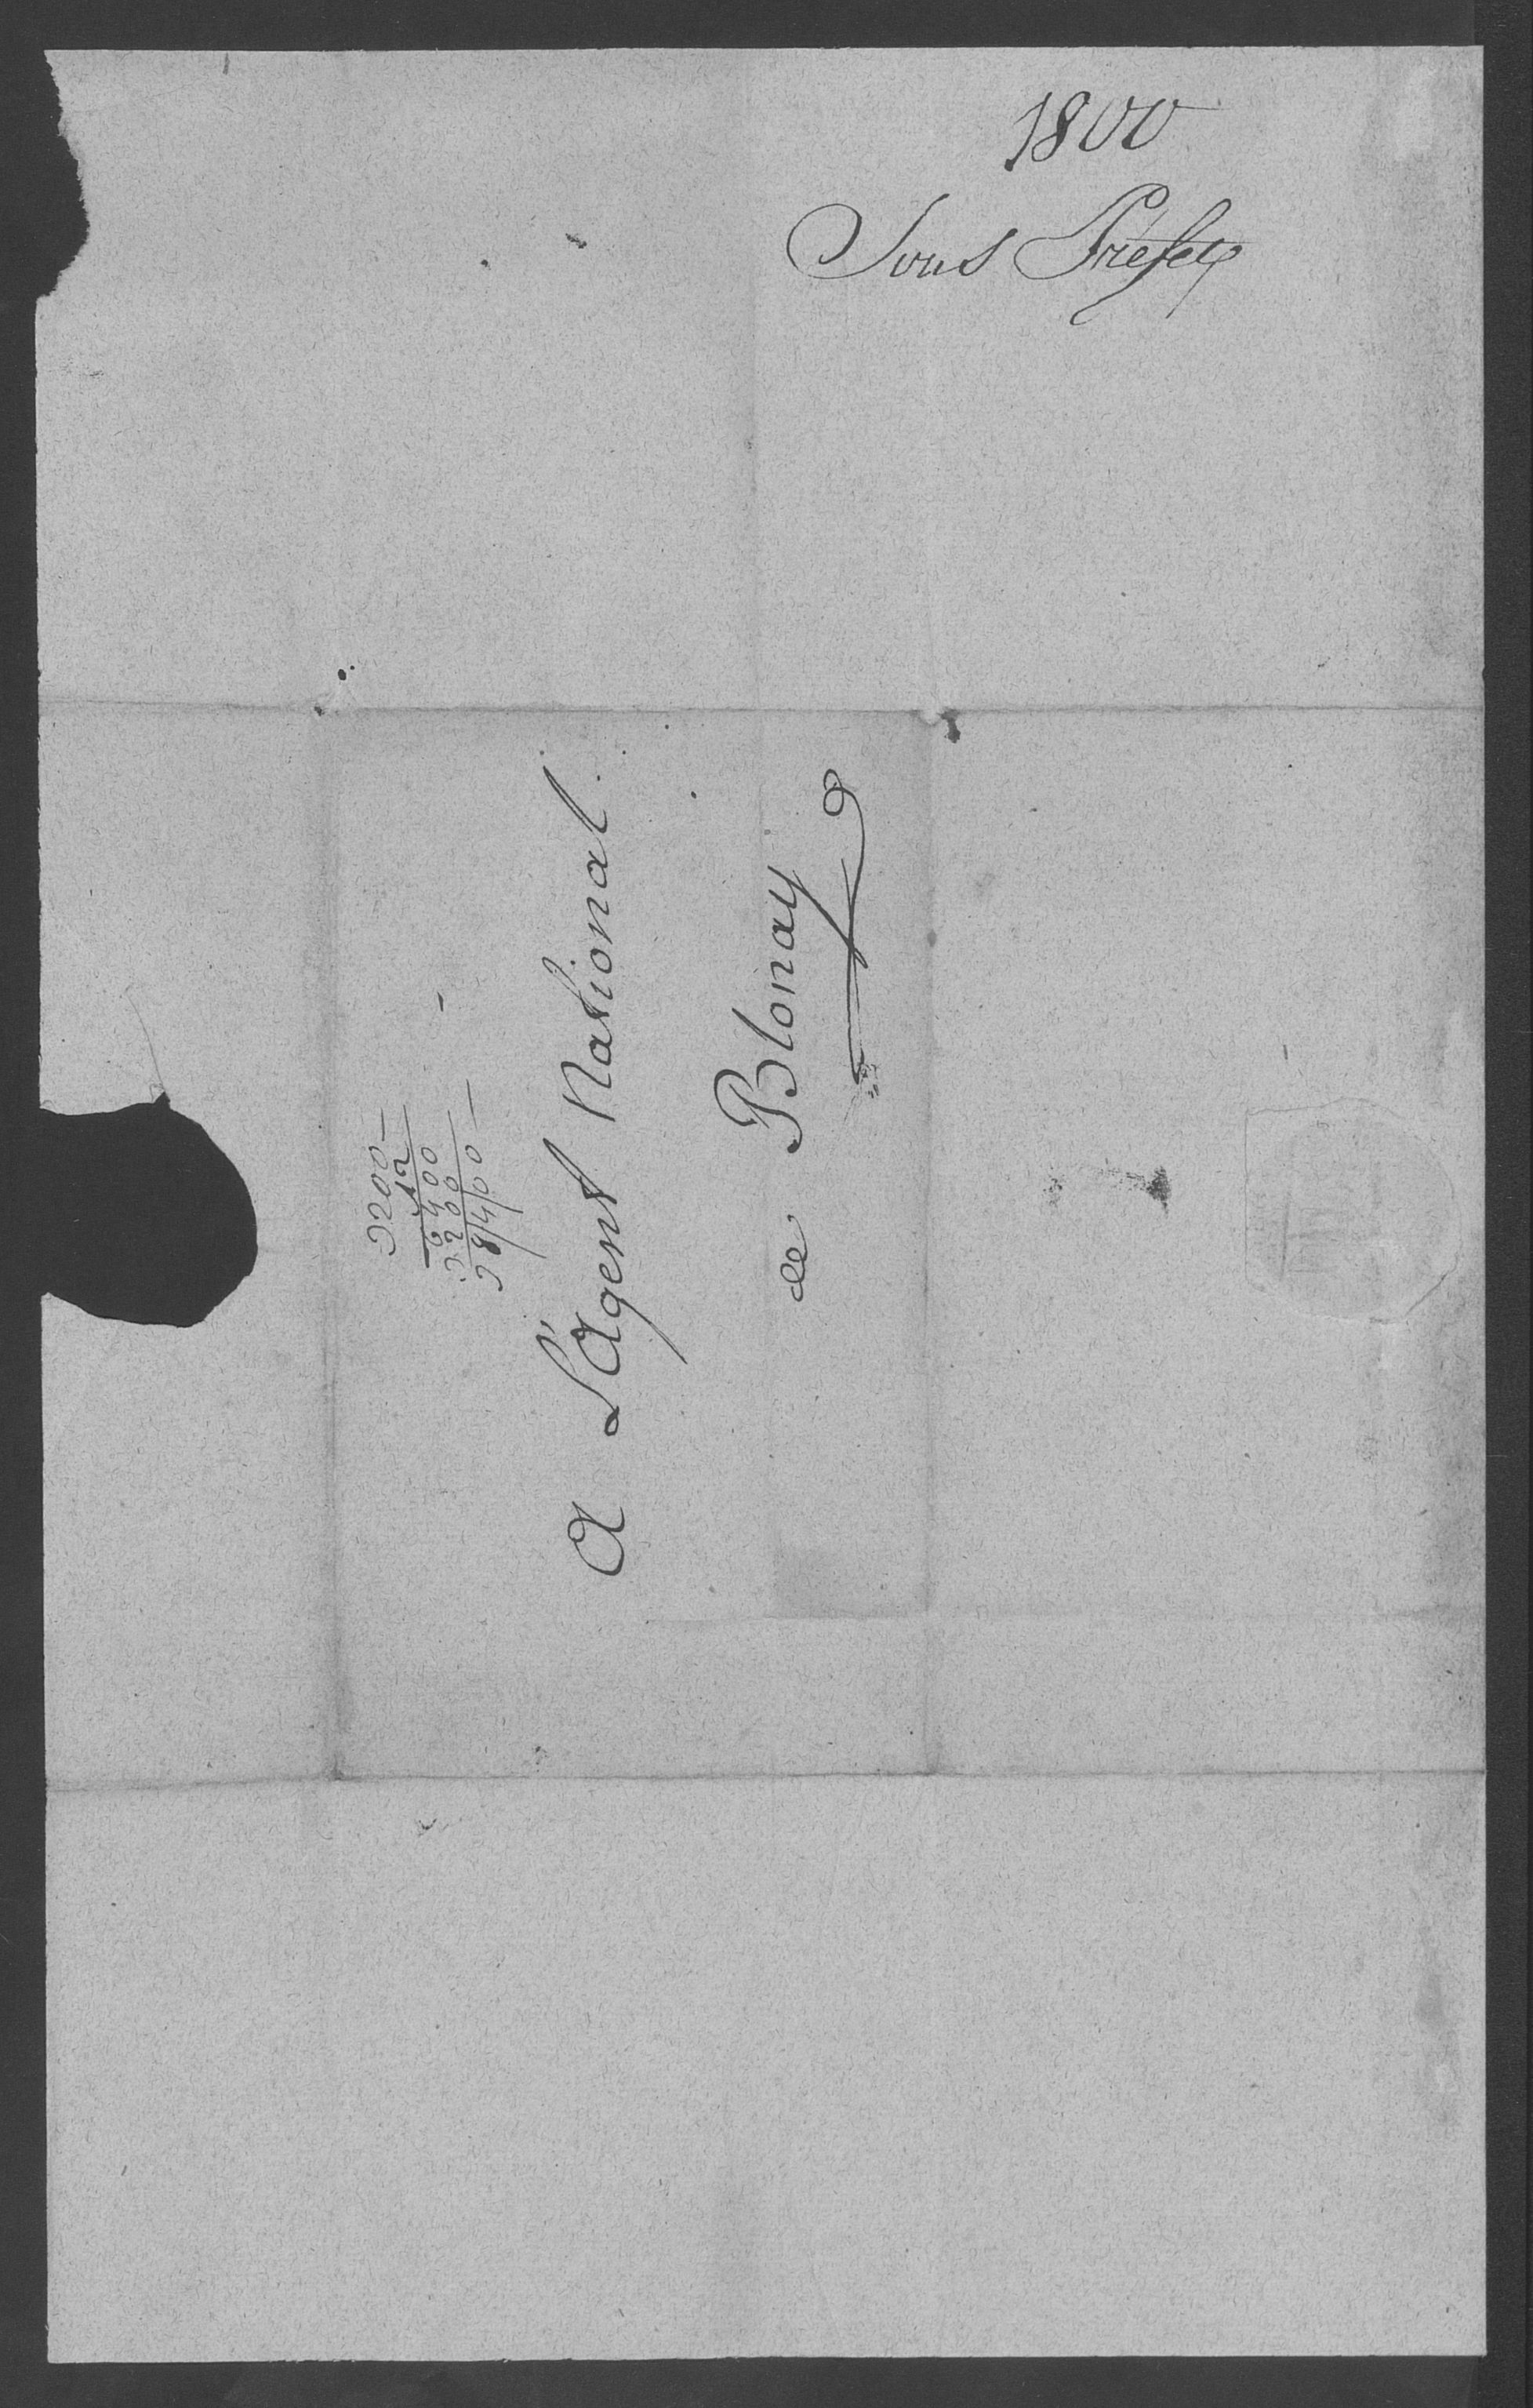 1800
Sous Préfet
3200
12
6400
3200
38400
A L'Agent National
de Blonay